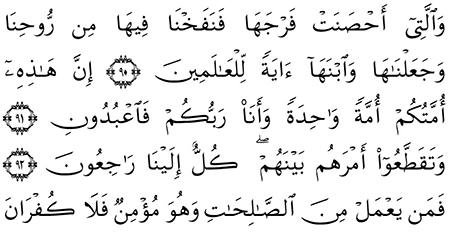 وَٱلَّتِىٓ أَحْصَنَتْ فَرْجَهَا فَنَفَخْنَا فِيهَا مِن رُّوحِنَا
وَجَعَلْنَٰهَا وَٱبْنَهَآ ءَايَةً لِّلْعَٰلَمِينَ ٩٠ إِنَّ هَٰذِهِۦٓ
أُمَّتُكُمْ أُمَّةً وَٰحِدَةً وَأَنَا۠ رَبُّكُمْ فَٱعْبُدُونِ ٩١
وَتَقَطَّعُوٓا۟ أَمْرَهُم بَيْنَهُمْ ۖ كُلٌّ إِلَيْنَا رَٰجِعُونَ ٩٢
فَمَن يَعْمَلْ مِنَ ٱلصَّٰلِحَٰتِ وَهُوَ مُؤْمِنٌ فَلَا كُفْرَانَ